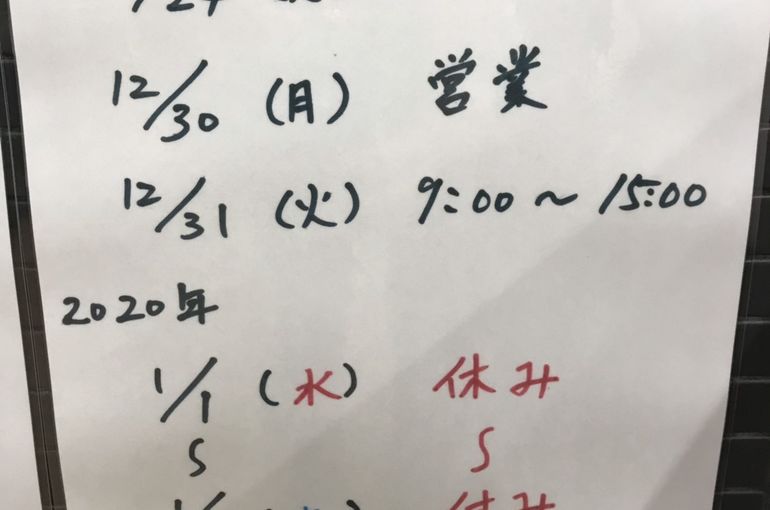 12/30 (月) 営業
12/31 (火) 9:00~15:00
2020年
1/1 (水) 休み
S S
休み